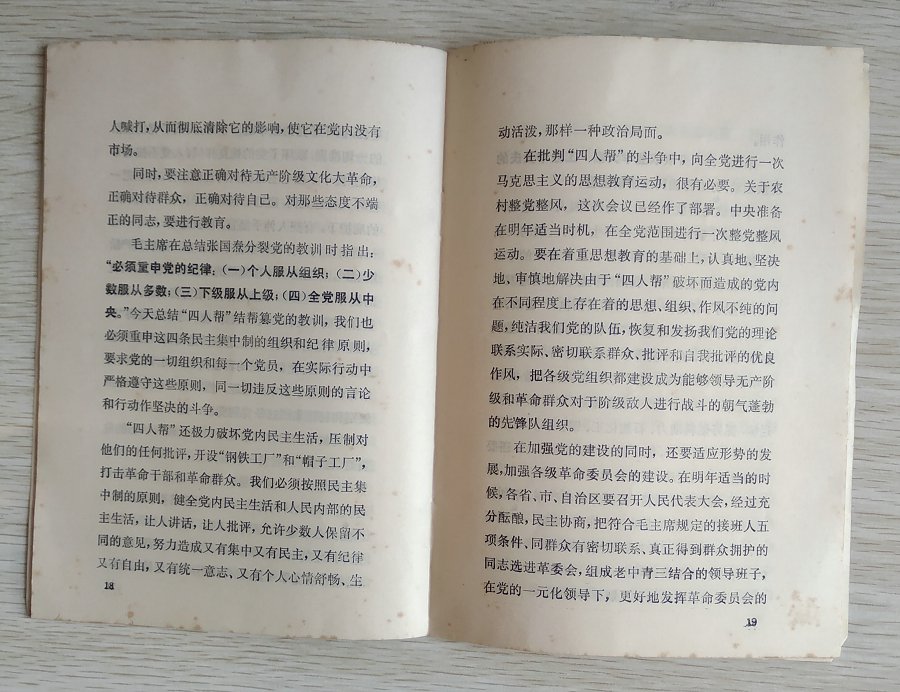 人喊打，从而彻底清除它的影响，使它在党内没有
市场。
同时，要注意正确对待无产阶级文化大革命，
正确对待群众，正确对待自己。对那些态度不端
正的同志，要进行教育。
毛主席在总结张国焘分裂党的教训时指出：
“必须重申党的纪律：（一）个人服从组织；（二）少
数服从多数；（三）下级服从上级；（四）全党服从中
央。”今天总结“四人帮”结帮篡党的教训，我们也
必须重申这四条民主集中制的组织和纪律原则，
要求党的一切组织和每一个党员，在实际行动中
严格遵守这些原则，同一切违反这些原则的言论
和行动作坚决的斗争。
“四人帮”还极力破坏党内民主生活，压制对
他们的任何批评，开设“钢铁工厂”和“帽子工厂”，
打击革命干部和革命群众。我们必须按照民主集
中制的原则，健全党内民主生活和人民内部的民
主生活，让人讲话，让人批评，允许少数人保留不
同的意见，努力造成又有集中又有民主，又有纪律
又有自由，又有统一意志、又有个人心情舒畅、生
18
动活泼，那样一种政治局面。
在批判“四人帮”的斗争中，向全党进行一次
马克思主义的思想教育运动，很有必要。关于农
村整党整风，这次会议已经作了部署。中央准备
在明年适当时机，在全党范围进行一次整党整风
运动。要在着重思想教育的基础上，认真地、坚决
地、审慎地解决由于“四人帮”破坏而造成的党内
在不同程度上存在着的思想、组织、作风不纯的问
题，纯洁我们党的队伍，恢复和发扬我们党的理论
联系实际、密切联系群众、批评和自我批评的优良
作风，把各级党组织都建设成为能够领导无产阶
级和革命群众对于阶级敌人进行战斗的朝气蓬勃
的先锋队组织。
在加强党的建设的同时，还要适应形势的发
展，加强各级革命委员会的建设。在明年适当的时
候，各省、市、自治区要召开人民代表大会，经过充
分酝酿，民主协商，把符合毛主席规定的接班人五
项条件、同群众有密切联系、真正得到群众拥护的
同志选进革委会，组成老中青三结合的领导班子，
在党的一元化领导下，更好地发挥革命委员会的
19